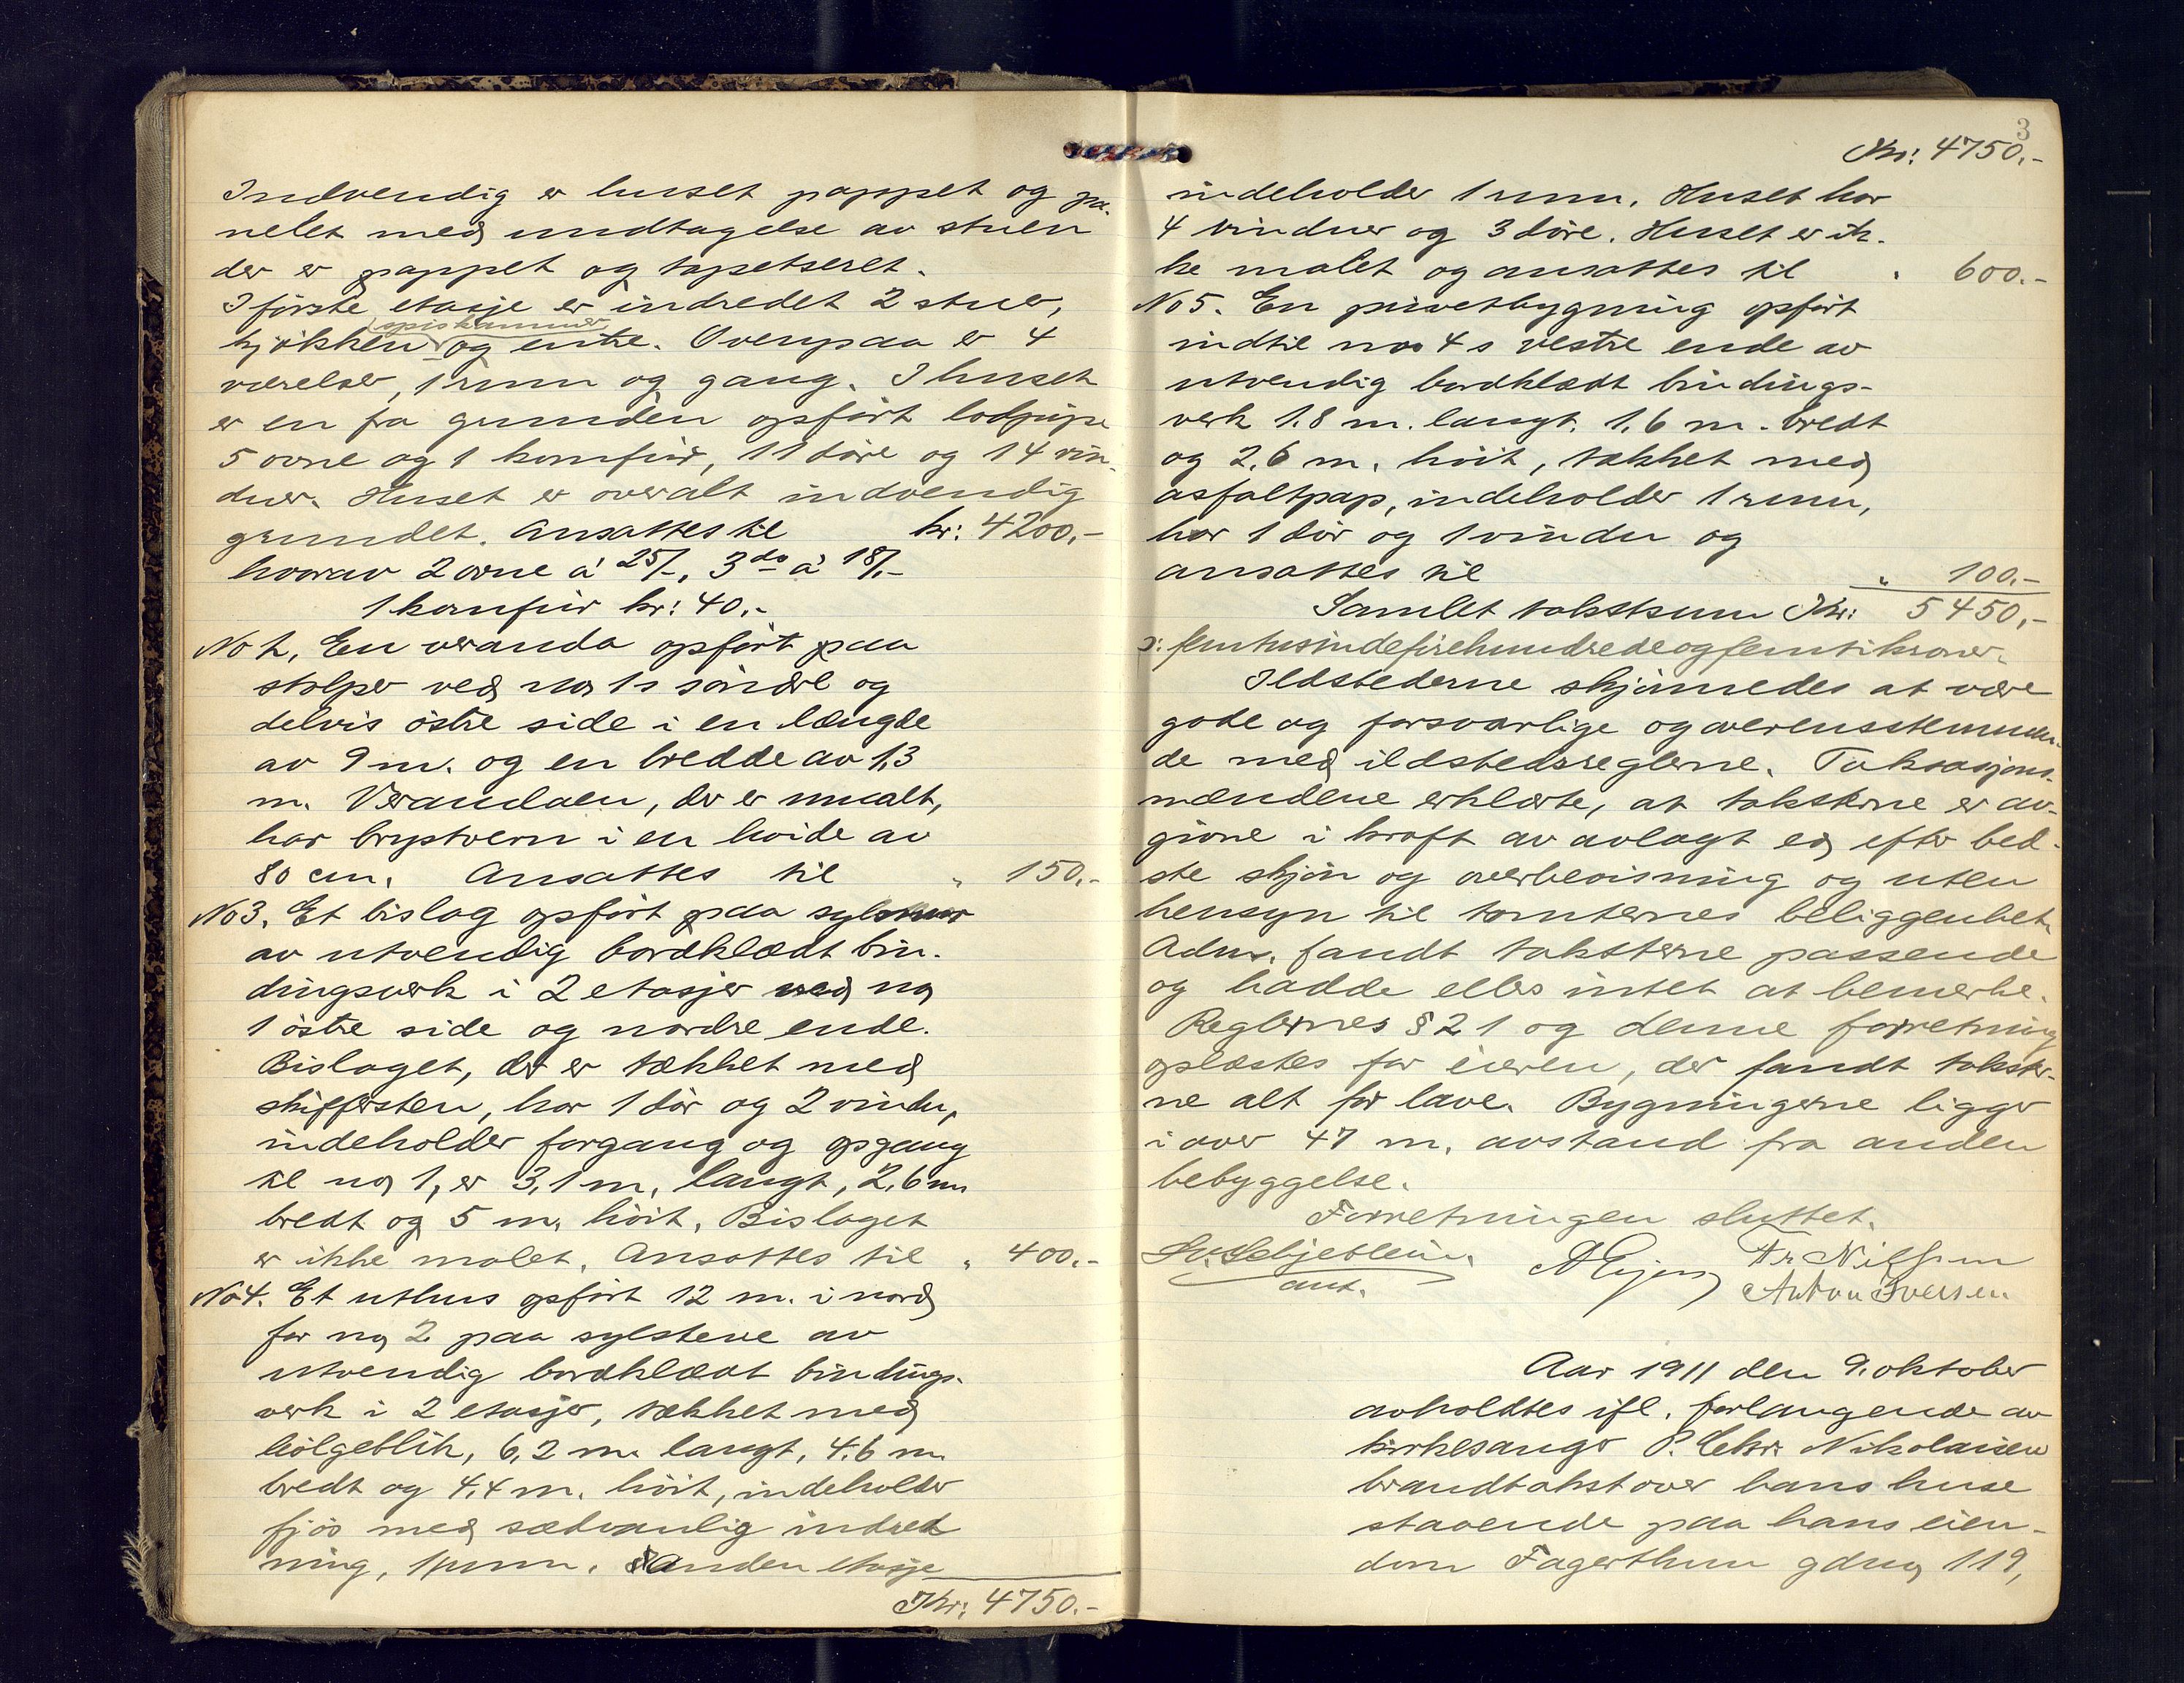 Indvendig er huset pappet og pa-
nelet med undtagelse av stuen
der er pappet og tapetseret.
I første etasje er indredet 2 stuer,
spiskammer
kjøkken og entre. Ovenpaa er 4
værelser, 1 rum og gang. I huset
er en fra grunden opført lodpipe
5 ovne og 1 komfur, 11 døre og 14 vin-
duer. Huset er overalt indvendig
grundet. Ansattes til kr: 4200.-
hvorav 2 ovne á 25/-, 3 do á 18/-
1 komfur kr: 40.-
No 2. En veranda opført paa
stolper ved no 1s søndre og
delvis østre side i en længde
av 9 m. og en bredde av 1,3
m. Verandaen, der er umalt,
har brystvern i en høide av
80 cm. Ansattes til " 150.-
No 3. Et bislag opført paa
av utvendig bordklædt bin-
dingsverk i 2 etasjer ved no
1 østre side og nordre ende.
Bislaget, der er tækket med
skifersten, har 1 dør og 2 vindu,
indeholder forgang og opgang
til no 1, er 3,1 m. langt, 2,6 m
bredt og 5 m. høit. Bislaget
er ikke malet. Ansattes til " 400.-
No 4. Et uthus opført 12 m. i nord
for no 2 paa sylstene av
utvendig bordklædt bindings-
verk i 2 etasjer, tækket med
bølgeblik, 6,2 m. langt, 4,6 m.
bredt og 4,4 m. høit, indeholder
fjøs med sedvanlig indred
ning, 1 rum. Anden etasje
Kr: 4750.-
3
Kr: 4750.-
indeholder 1 rum. Huset har
4 vinduer og 3 døre. Huset er ik-
ke malet og ansattes til " 600.-
No 5. En privetbygning opført
indtil no 4s vestre ende av
utvendig bordklædt bindings-
verk 1.8 m. langt. 1,6 m. bredt
og 2,6 m. høit, tækket med
asfaltpap, indeholder 1 rum,
har 1 dør og 1 vindu og
ansattes til " 100.-
Samlet takstsum Kr: 5450.-
ɔ: femtusindefirehundredeogfemtikroner.
Ildstederne skjønnedes at være
gode og forsvarlige og overensstemmen-
de med ildstedsreglerne. Taksasjons-
mændene erklærte, at taksterne er av-
givne i kraft av avlagt ed efter bed-
ste skjøn og overbevisning og uten
hensyn til tomternes beliggenhet.
Adm. fandt taksterne passende
og hadde ellers intet at bemerke.
Reglernes § 21 og denne forretning
oplæstes for eieren, der fandt takster-
ne alt for lave. Bygningerne ligger
i over 47 m. avstand fra anden
bebyggelse.
Forretningen sluttet.
Fr Nilssen
ant. Anton Iversen
Aar 1911 den 9. oktober
avholdtes ifl. forlangende av
kirkesanger P. Chr. Nikolaisen
brandtakst over hans huse
staaende paa hans eien-
dom Fagerthun gdno 119,